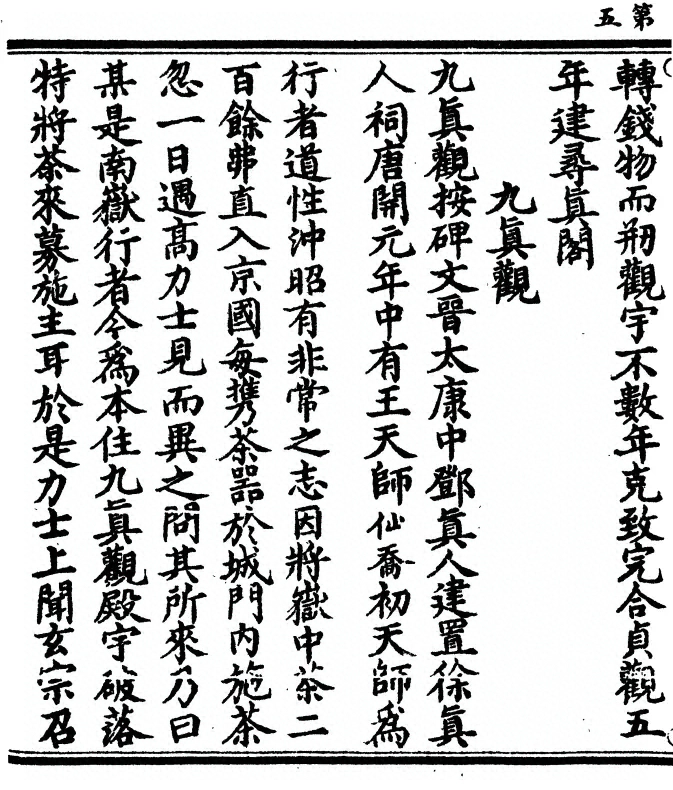 第五
轉錢物而刱觀宇不數年克致完合貞觀五
年建尋眞閣
九眞觀
九眞觀按碑文晉太康中鄧眞人建置徐眞
人祠唐開元年中有王天師仙喬初天師爲
行者道性沖昭有非常之志因將嶽中茶二
百餘弗直入京國每携茶器於城門內施茶
忽一日遇高力士見而異之問其所來乃曰
某是南嶽行者今爲本住九眞觀殿宇破落
特將茶來募施主耳於是力士上聞玄宗召